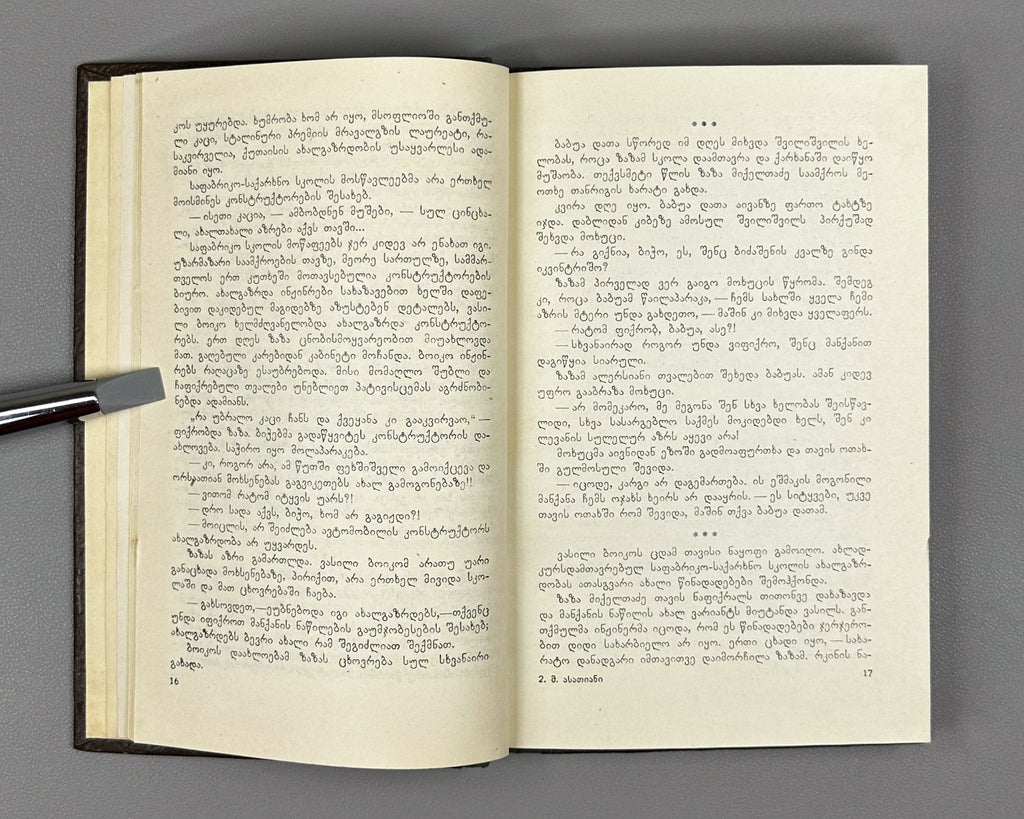 კოს უყურებდა. ხუმრობა ხომ არ იყო, მსოფლიოში განთქმუ-
ლი კაცი, სტალინური პრემიის მრავალგზის ლაურეატი, რა-
საკვირველია, ქუთაისის ახალგაზრდობის უსაყვარლესი ადა-
მიანი იყო.
საფაბრიკო-საქარხნო სკოლის მოსწავლეებმა არა ერთხელ
მოისმინეს კონსტრუქტორების შესახებ.
— ისეთი კაცია, — ამბობდნენ მუშები, — სულ ცინცხა-
ლი, ახალთახალი აზრები აქვს თავში...
საფაბრიკო სკოლის მოწაფეებს ჯერ კიდევ არ ენახათ იგი.
უზარმაზარი საამქროების თავზე, მეორე სართულზე, სამმარ-
თველოს ერთ კუთხეში მოთავსებულია კონსტრუქტორების
ბიურო. ახალგაზრდა ინჟინრები სახაზავებით ხელში დაფე-
ბივით დაკიდებულ მაგიდებზე აზუსტებენ დეტალებს, ვასი-
ლი ბოიკო ხელმძღვანელობდა ახალგაზრდა კონსტრუქტო-
რებს. ერთ დღეს ზაზა ცნობისმოყვარეობით მიუახლოვდა
მათ. გაღებული კარებიდან კაბინეტი მოჩანდა. ბოიკო ინჟინ-
რებს რაღაცაზე ესაუბრებოდა. მისი მომაღლო შუბლი და
ჩაფიქრებული თვალები უნებლიეთ პატივისცემას აგრძნობი-
ნებდა ადამიანს.
„რა უბრალო კაცი ჩანს და ქვეყანა კი გააკვირვაო,“ —
ფიქრობდა ზაზა. ბიჭებმა გადაწყვიტეს კონსტრუქტორის და-
ახლოვება. საჭირო იყო მოლაპარაკება.
— კი, როგორ არა, ამ წუთში ფეხშიშველი გამოიქცევა და
ორსაათიან მოხსენებას გაგვიკეთებს ახალ გამოგონებაზე!!
— ვითომ რატომ იტყვის უარს?!
— დრო სადა აქვს, ბიჭო, ხომ არ გაგიჟდი?!
— მოიცლის, არ შეიძლება ავტომობილის კონსტრუქტორს
ახალგაზრდობა არ უყვარდეს.
ზაზას აზრი გამართლდა. ვასილი ბოიკომ არათუ უარი
განაცხადა მოხსენებაზე, პირიქით, არა ერთხელ მივიდა სკო-
ლაში და მათ ცხოვრებაში ჩაება.
— გახსოვდეთ,—ეუბნებოდა იგი ახალგაზრდებს,—თქვენც
უნდა იფიქროთ მანქანის ნაწილების გაუმჯობესების შესახებ;
ახალგაზრდებს ბევრი ახალი რამ შეგიძლიათ შექმნათ.
ბოიკოს დაახლოებამ ზაზას ცხოვრება სულ სხვანაირი
გახადა.
16
***
ბაბუა დათა სწორედ იმ დღეს მიხვდა შვილიშვილის ხე-
ლობას, როცა ზაზამ სკოლა დაამთავრა და ქარხანაში დაიწყო
მუშაობა. თექვსმეტი წლის ზაზა მიქელთაძე საამქროს მე-
ოთხე თანრიგის ხარატი გახდა.
კვირა დღე იყო. ბაბუა დათა აივანზე ფართო ტახტზე
იჯდა. დაბლიდან კიბეზე ამოსულ შვილიშვილს პირქუშად
შეხვდა მოხუცი.
— რა გიქნია, ბიჭო, ეს, შენც ბიძაშენის კვალზე გინდა
იკვინტრიშო?
ზაზამ პირველად ვერ გაიგო მოხუცის წყრომა. შემდეგ
კი, როცა ბაბუამ წაილაპარაკა, — ჩემს სახლში ყველა ჩემი
აზრის მტერი უნდა გახდეთო, — მაშინ კი მიხვდა ყველაფერს.
— რატომ ფიქრობ, ბაბუა, ასე?!
— სხვანაირად როგორ უნდა ვიფიქრო, შენც მანქანით
დაგიწყია სიარული.
ზაზამ ალერსიანი თვალებით შეხედა ბაბუას. ამან კიდევ
უფრო გააბრაზა მოხუცი.
— არ მომეკარო, მე მეგონა შენ სხვა ხელობას შეისწავ-
ლიდი, სხვა სასარგებლო საქმეს მოკიდებდი ხელს, შენ კი
ლევანის სულელურ აზრს აყევი არა!
მოხუცმა აივნიდან ეზოში გადმოაფურთხა და თავის ოთახ-
ში გულმოსული შევიდა.
— იცოდე, კარგი არ დაგემართება. ის ეშმაკის მოგონილი
მანქანა ჩემს ოჯახს ხეირს არ დააყრის. — ეს სიტყვები, უკვე
თავის ოთახში რომ შევიდა, მაშინ თქვა ბაბუა დათამ.
***
ვასილი ბოიკოს ცდამ თავისი ნაყოფი გამოიღო. ახლად-
კურსდამთავრებულ საფაბრიკო-საქარხნო სკოლის ახალგაზრ-
დობას ათასგვარი ახალი წინადადებები შემოჰქონდა.
ზაზა მიქელთაძე თავის ნაფიქრალს თითონვე დახაზავდა
და მანქანის ნაწილის ახალ ვარიანტს მიუტანდა ვასილს. გან-
თქმულმა ინჟინერმა იცოდა, რომ ეს წინადადებები ჯერჯერო-
ბით დიდი სახარბიელო არ იყო. ერთი ცხადი იყო, — სახა-
რატო დანადგარი იმთავითვე დაიმორჩილა ზაზამ. რკინის ნა-
2. მ. ასათიანი
17